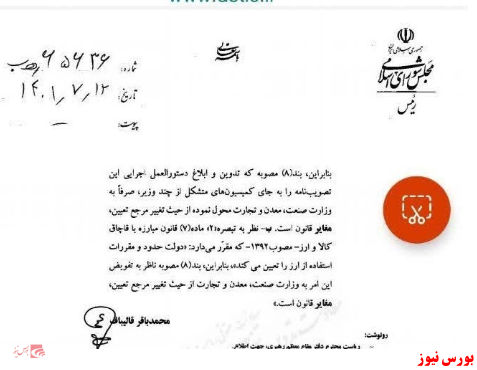 جمهوری اسلامی ایران
مجلس شورای اسلامی
رئیس
شماره: ۶۵۶۳۶
تاریخ: ۱۴۰۱/۷/۱۲
پیوست: —
بنابراین، بند(۸) مصوبه که تدوین و ابلاغ دستورالعمل اجرایی این
تصویب‌نامه را به جای کمیسیون‌های متشکل از چند وزیر، صرفاً به
وزارت صنعت، معدن و تجارت محول نموده از حیث تغییر مرجع تعیین،
مغایر قانون است. ب- نظر به تبصره«۲» ماده(۷) قانون مبارزه با قاچاق
کالا و ارز- مصوب۱۳۹۲- که مقرّر می‌دارد: «دولت حدود و مقررات
استفاده از ارز را تعیین می کند»، بنابراین، بند(۸) مصوبه ناظر به تفویض
این امر به وزارت صنعت، معدن و تجارت از حیث تغییر مرجع تعیین،
مغایر قانون است.»
محمدباقر قالیباف
رونوشت:
ریاست محترم دفتر مقام معظم رهبری، جهت اطلاع.
بورس نیوز